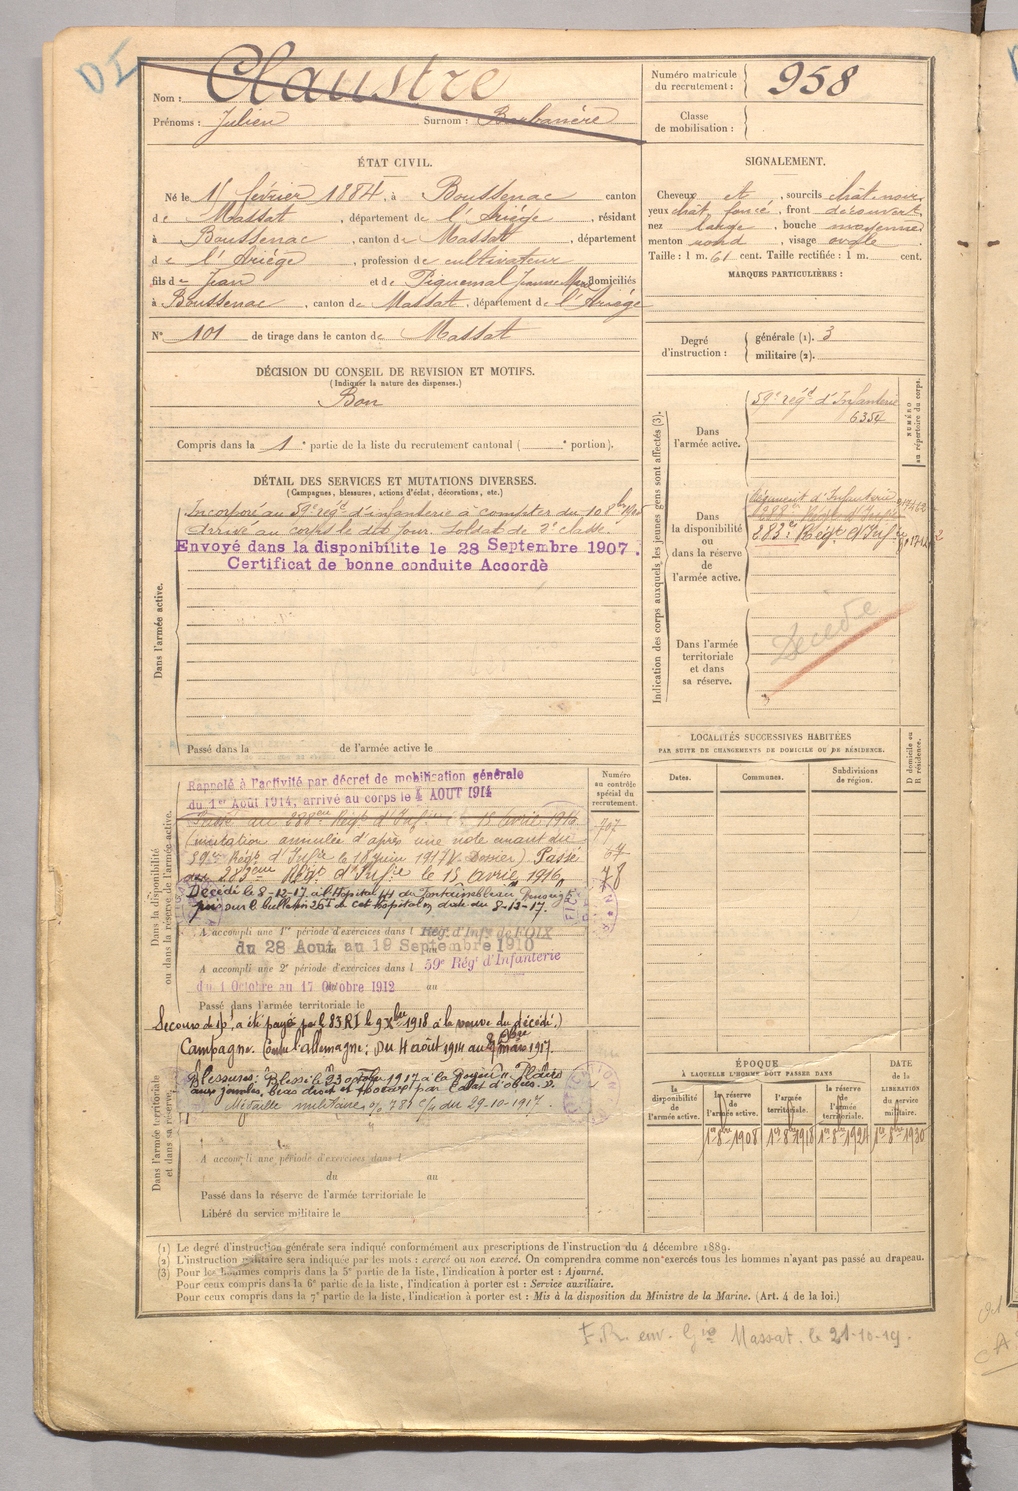 DI
Nom : Claustre
Prénoms : Julien Surnom : Barbanère
Numéro matricule du recrutement : 958
Classe de mobilisation :
ÉTAT CIVIL.
Né le 15 février 1884, à Boussenac canton
de Massat, département de l'Ariège, résidant
à Boussenac, canton de Massat, département
de l'Ariège, profession de cultivateur
fils de Jean et de Piquemal Jeanne Marie domiciliés
à Boussenac, canton de Massat, département de l'Ariège
N° 101 de tirage dans le canton de Massat
SIGNALEMENT.
Cheveux et, sourcils chât noir
yeux chât foncé, front découvert
nez large, bouche moyenne
menton rond, visage ovale
Taille : 1 m. 61 cent. Taille rectifiée : 1 m. cent.
MARQUES PARTICULIÈRES :
Degré d'instruction : générale (1). 3
militaire (2).
DÉCISION DU CONSEIL DE REVISION ET MOTIFS.
(Indiquer la nature des dispenses.)
Bon
Compris dans la 1e partie de la liste du recrutement cantonal ( e portion).
DÉTAIL DES SERVICES ET MUTATIONS DIVERSES.
(Campagnes, blessures, actions d'éclat, décorations, etc.)
Dans l'armée active.
Incorporé au 59e régt d'infanterie à compter du 10 8bre
Arrivé au corps le dit jour. Soldat de 2e classe.
Envoyé dans la disponibilite le 28 Septembre 1907.
Certificat de bonne conduite Accordè
Passé dans la de l'armée active le
Indication des corps auxquels les jeunes gens sont affectés (3).
NUMÉRO au répertoire du corps.
Dans l'armée active.
59e régt d'Infanterie
6354
Dans la disponibilité ou dans la réserve de l'armée active.
Régiment d'Infanterie
288e Régt d'Infie
283e Régt d'Infie
Dans l'armée territoriale et dans sa réserve.
Décédé
LOCALITÉS SUCCESSIVES HABITÉES
PAR SUITE DE CHANGEMENTS DE DOMICILE OU DE RÉSIDENCE.
Dates.
Communes.
Subdivisions de région.
D domicile ou R résidence.
Dans la disponibilité ou dans la réserve de l'armée active.
Numéro au contrôle spécial du recrutement.
Rappelé à l'activité par décret de mobilisation générale
du 1er Août 1914, arrivé au corps le 4 AOUT 1914
Passé au 288eme Régt d'Infie le 15 avril 1916
(mutation annulée d'après une note émant du
59e Régt d'Infie le 18 juin 1917 V. Dossier) Passé
au 283eme Régt d'Infie le 15 avril 1916
Décédé le 8-12-17 à l'Hopital 44 de Fontainebleau
sur le bulletin 26 de cet Hopital en date du 8-12-17.
A accompli une 1re période d'exercices dans l Rég. d'Infie de FOIX
du 28 Aout au 19 Septembre 1910
A accompli une 2e période d'exercices dans l 59e Régt d'Infanterie
du 1 Octobre au 17 Octobre 1912 au
Passé dans l'armée territoriale le
Secours de 150f a été payé par le 83 RI le 9 Xbre 1918 à la veuve du décédé.)
Campagne. Contre l'allemagne : Du 4 août 1914 au
Blessures : Blessé le 23 octobre 1917 à la Royère. Plaies
aux jambes, bras droit et par éclat d'obus.
Médaille militaire 781 du 29-10-1917.
Dans l'armée territoriale et dans sa réserve.
A accompli une période d'exercices dans l
du au
Passé dans la réserve de l'armée territoriale le
Libéré du service militaire le
ÉPOQUE
À LAQUELLE L'HOMME DOIT PASSER DANS
la disponibilité de l'armée active.
la réserve de l'armée active.
l'armée territoriale.
la réserve de l'armée territoriale.
DATE de la LIBÉRATION du service militaire.
1er 8bre 1908
1er 8bre 1918
1er 8bre 1924
1er 8bre 1930
(1) Le degré d'instruction générale sera indiqué conformément aux prescriptions de l'instruction du 4 décembre 1889.
(2) L'instruction militaire sera indiquée par les mots : exercé ou non exercé. On comprendra comme non exercés tous les hommes n'ayant pas passé au drapeau.
(3) Pour les hommes compris dans la 5e partie de la liste, l'indication à porter est : Ajourné.
Pour ceux compris dans la 6e partie de la liste, l'indication à porter est : Service auxiliaire.
Pour ceux compris dans la 7e partie de la liste, l'indication à porter est : Mis à la disposition du Ministre de la Marine. (Art. 4 de la loi.)
F.R. env. Gie Massat. le 21-10-19.